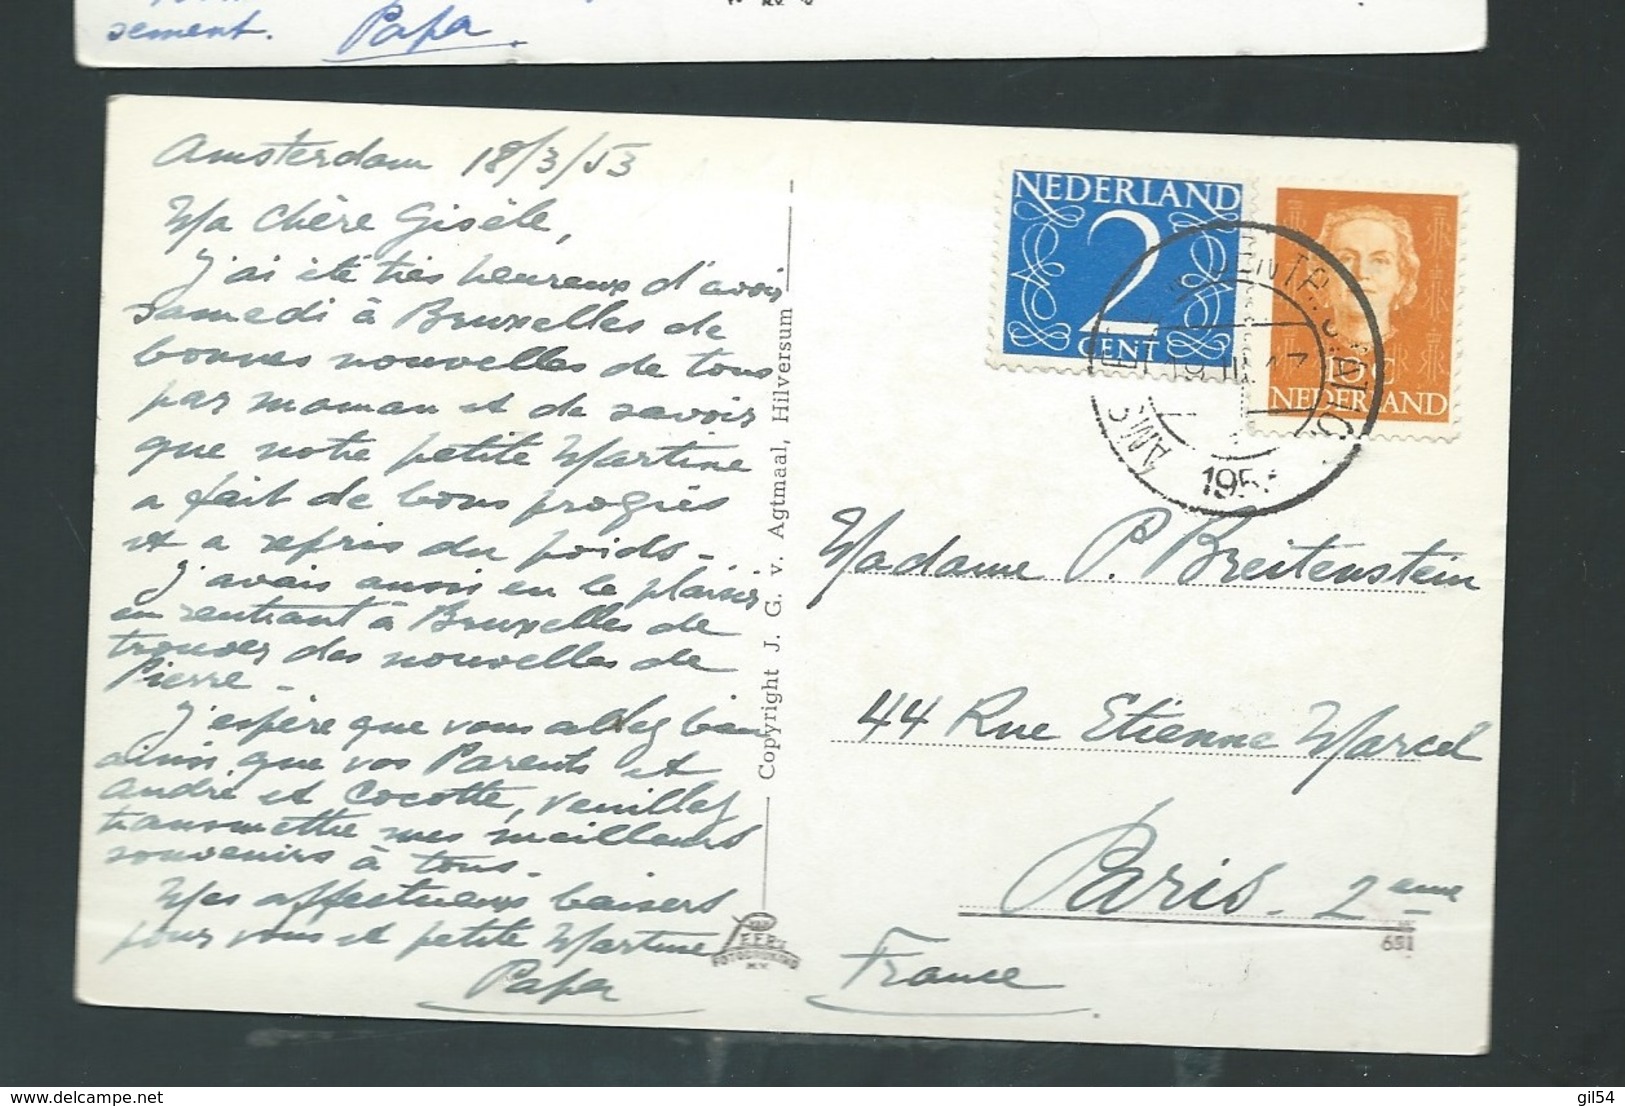 sement. Papa.
Amsterdam 18/3/53
Ma Chère Gisèle,
J'ai été très heureux d'avoir
samedi à Bruxelles de
bonnes nouvelles de tous
par maman et de savoir
que notre petite Martine
a fait de bons progrès
et a repris du poids.-
J'avais aussi eu le plaisir
en rentrant à Bruxelles de
trouver des nouvelles de
Pierre.-
J'espère que vous allez bien
ainsi que vos Parents et
André et Cocotte, veuillez
transmettre mes meilleurs
souvenirs à tous.
Mes affectueux baisers
pour vous et petite Martine
Papa
Copyright J. G. v. Agtmaal, Hilversum
NEDERLAND
2
CENT
10 C
NEDERLAND
19 III
195
Madame P. Breitenstein
44 Rue Etienne Marcel
Paris. 2eme
681
France.
gil54